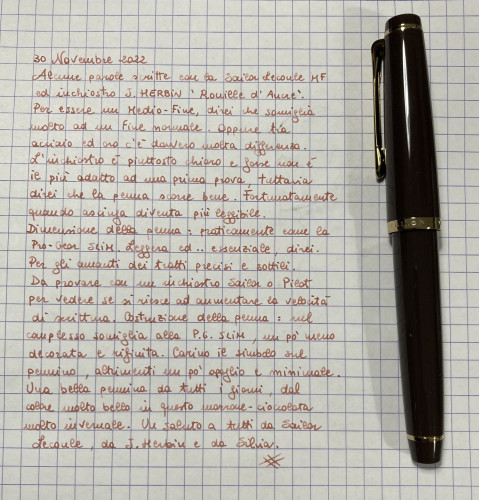 30 Novembre 2022
Alcune parole scritte con la Sailor Lecoule MF
ed inchiostro J. HERBIN "Rouille d'Ancre".
Per essere un Medio-Fine, direi che somiglia
molto ad un Fine normale. Oppure tra
acciaio ed oro c'è davvero molta differenza.
L'inchiostro è piuttosto chiaro e forse non è
il più adatto ad una prima prova, tuttavia
direi che la penna scorre bene. Fortunatamente
quando asciuga diventa più leggibile.
Dimensione della penna: praticamente come la
Pro-Gear SLIM. Leggera ed.. essenziale, direi.
Per gli amanti dei tratti precisi e sottili.
Da provare con un inchiostro Sailor o Pilot
per vedere se si riesce ad aumentare la velocità
di scrittura. Costruzione della penna: nel
complesso somiglia alla P.G. SLIM, un po' meno
decorata e rifinita. Carino il simbolo sul
pennino, altrimenti un po' spoglio e minimale.
Una bella pennina da tutti i giorni, dal
colore molto bello in questo marrone-cioccolata
molto invernale. Un saluto a tutti da Sailor
Lecoule, da J. Herbin e da Silvia.